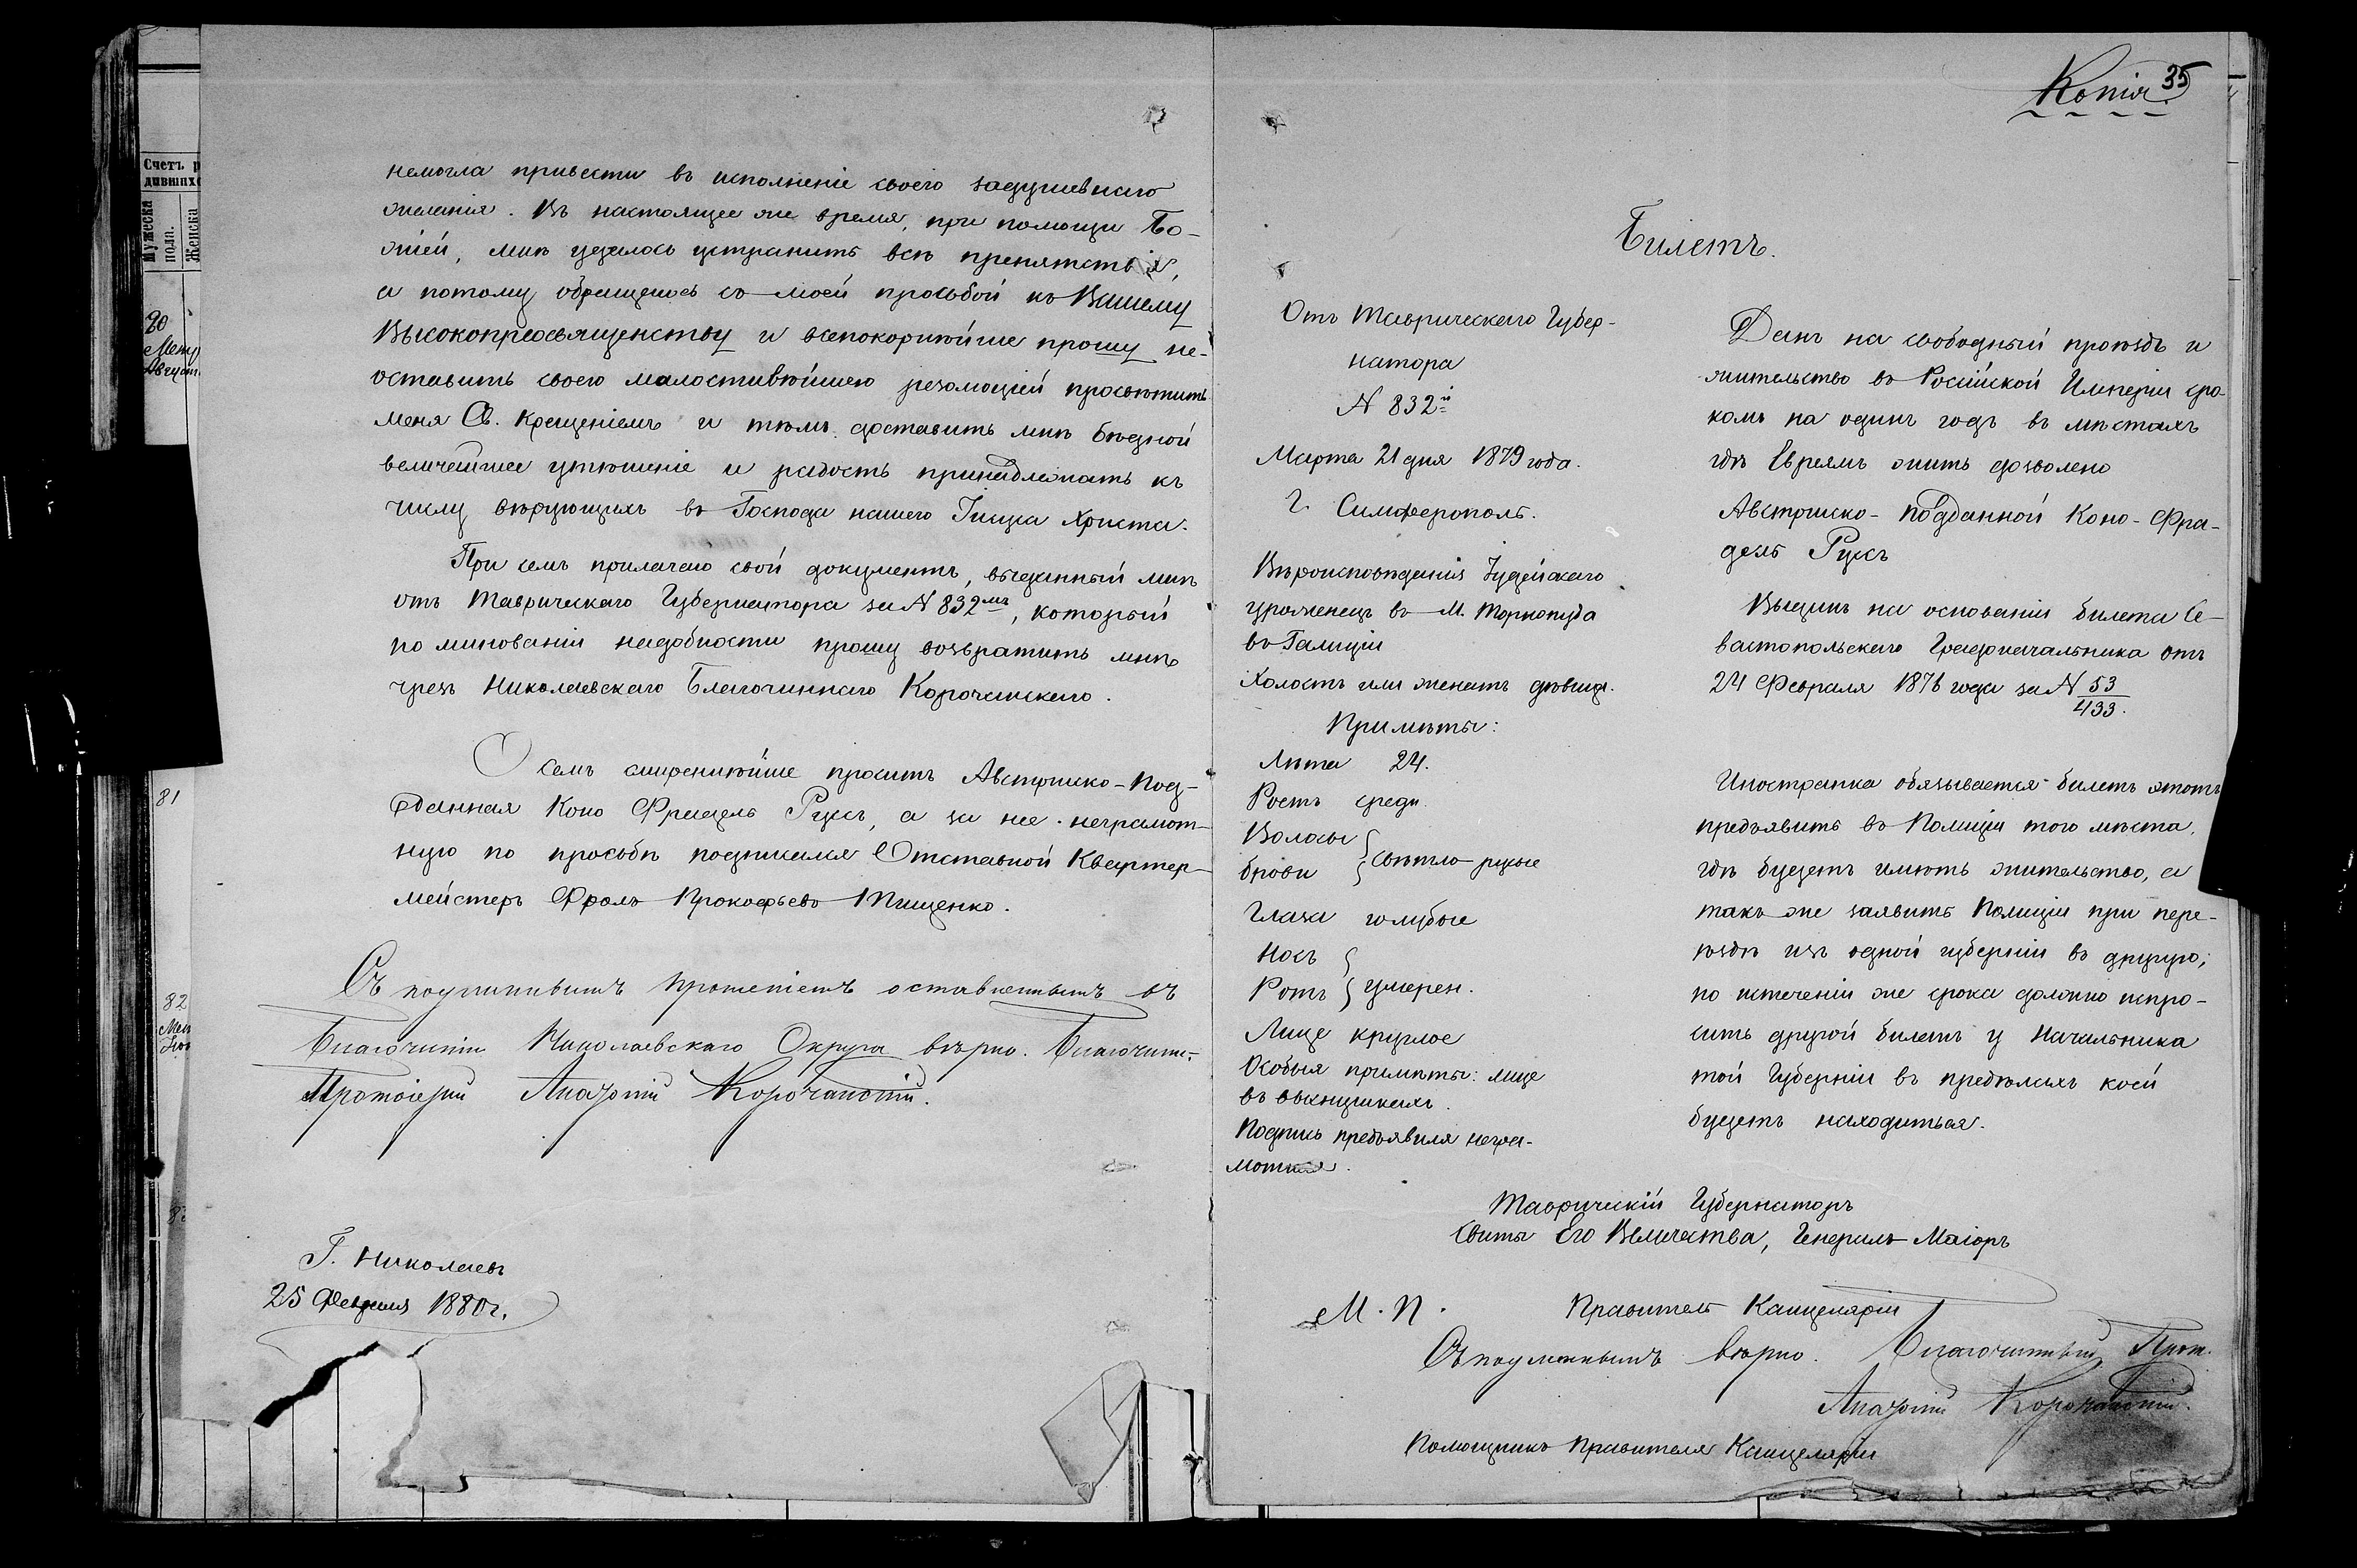 немогла привести въ исполненіе своего задушевнаго
желанія. Въ настоящее же время, при помощи Бо-
жіей, мнѣ удалось устранить всѣ препятствія,
а потому обращаюсь съ моей просьбой къ Вашему
Высокопреосвященству и всепокорнѣйше прошу не-
оставить своею милостивѣйшею резолюціей просвѣтить
меня Св. Крещеніемъ и тѣмъ доставить мнѣ бѣдной
величайшее утѣшеніе и радость принадлежать къ
числу вѣрующихъ въ Господа нашего Іисуса Христа.
При семъ прилагаю свой документъ, выданный мнѣ
отъ Таврическаго Губернатора за N 832мъ, который
по минованіи надобности прошу возвратить мнѣ
чрезъ Николаевскаго Благочиннаго Корочанскаго.
О семъ смиреннѣйше проситъ Австрійско-под-
данная Коно Фрадель Руксъ, а за нее неграмот-
ную по просьбѣ подписался Отставной Квартер-
мейстеръ Фролъ Прокофьевъ Тищенко.
Съ подлиннымъ прошеніемъ оставленнымъ въ
Благочиніи Николаевскаго Округа вѣрно. Благочин.
Протоіерей Анатолій Корочанскій.
Г. Николаевъ
25 Февраля 1880 г.
Счетъ р
дившихс
Мужеска
пола.
Женска
20
Август
81
82
Копія 35
Билетъ.
Отъ Таврическаго Губер-
натора
N 832й
Марта 21 дня 1879 года.
Г. Симферополь.
Вѣроисповѣданія Іудейскаго
уроженецъ въ М. Торнопуда
въ Галиціи
Холостъ или женатъ дѣвица.
Примѣты:
Лѣта 24.
Ростъ средн.
Волосы
брови свѣтло-русые
Глаза голубые
Носъ
Ротъ умерен.
Лице круглое
Особыя примѣты: лице
въ веснушкахъ.
Подпись предъявиля негра-
мотная.
Данъ на свободный проѣздъ и
жительство въ Россійской Имперіи сро-
комъ на одинъ годъ въ мѣстахъ
гдѣ Евреямъ жить дозволено
Австрійско-подданной Коно-Фра-
дель Руксъ
Выданъ на основаніи билета Се-
вастопольскаго Градоначальника отъ
24 Февраля 1876 года за N 53
433.
Иностранка обязывается билетъ этотъ
предъявить въ Полиціи того мѣста,
гдѣ будетъ имѣть жительство, а
такъ же заявить Полиціи при пере-
ѣздѣ изъ одной губерніи въ другую;
по истеченіи же срока должно испро-
сить другой билетъ у Начальника
той Губерніи въ предѣлахъ коей
будетъ находиться.
Таврическій Губернаторъ
Свиты Его Величества, Генералъ-Маіоръ
М. П. Правитель Канцеляріи
Съ подлиннымъ вѣрно. Благочинный Прот.
Анатолій Корочанскій.
Помощникъ Правителя Канцеляріи